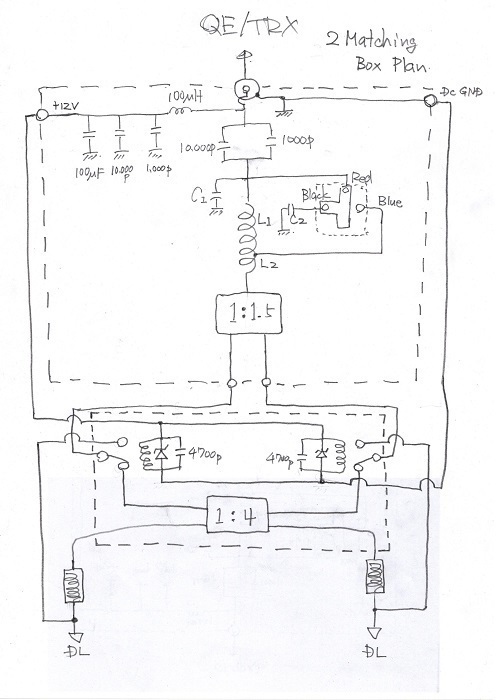 QE/TRX
2 Matching
Box Plan.
+12V
100μH
DC GND
100μF
10,000
p
1,000p
10,000p
1000p
C1
Red
Black
C2
Blue
L1
L2
1:1.5
4700p
4700p
1:4
DL
DL